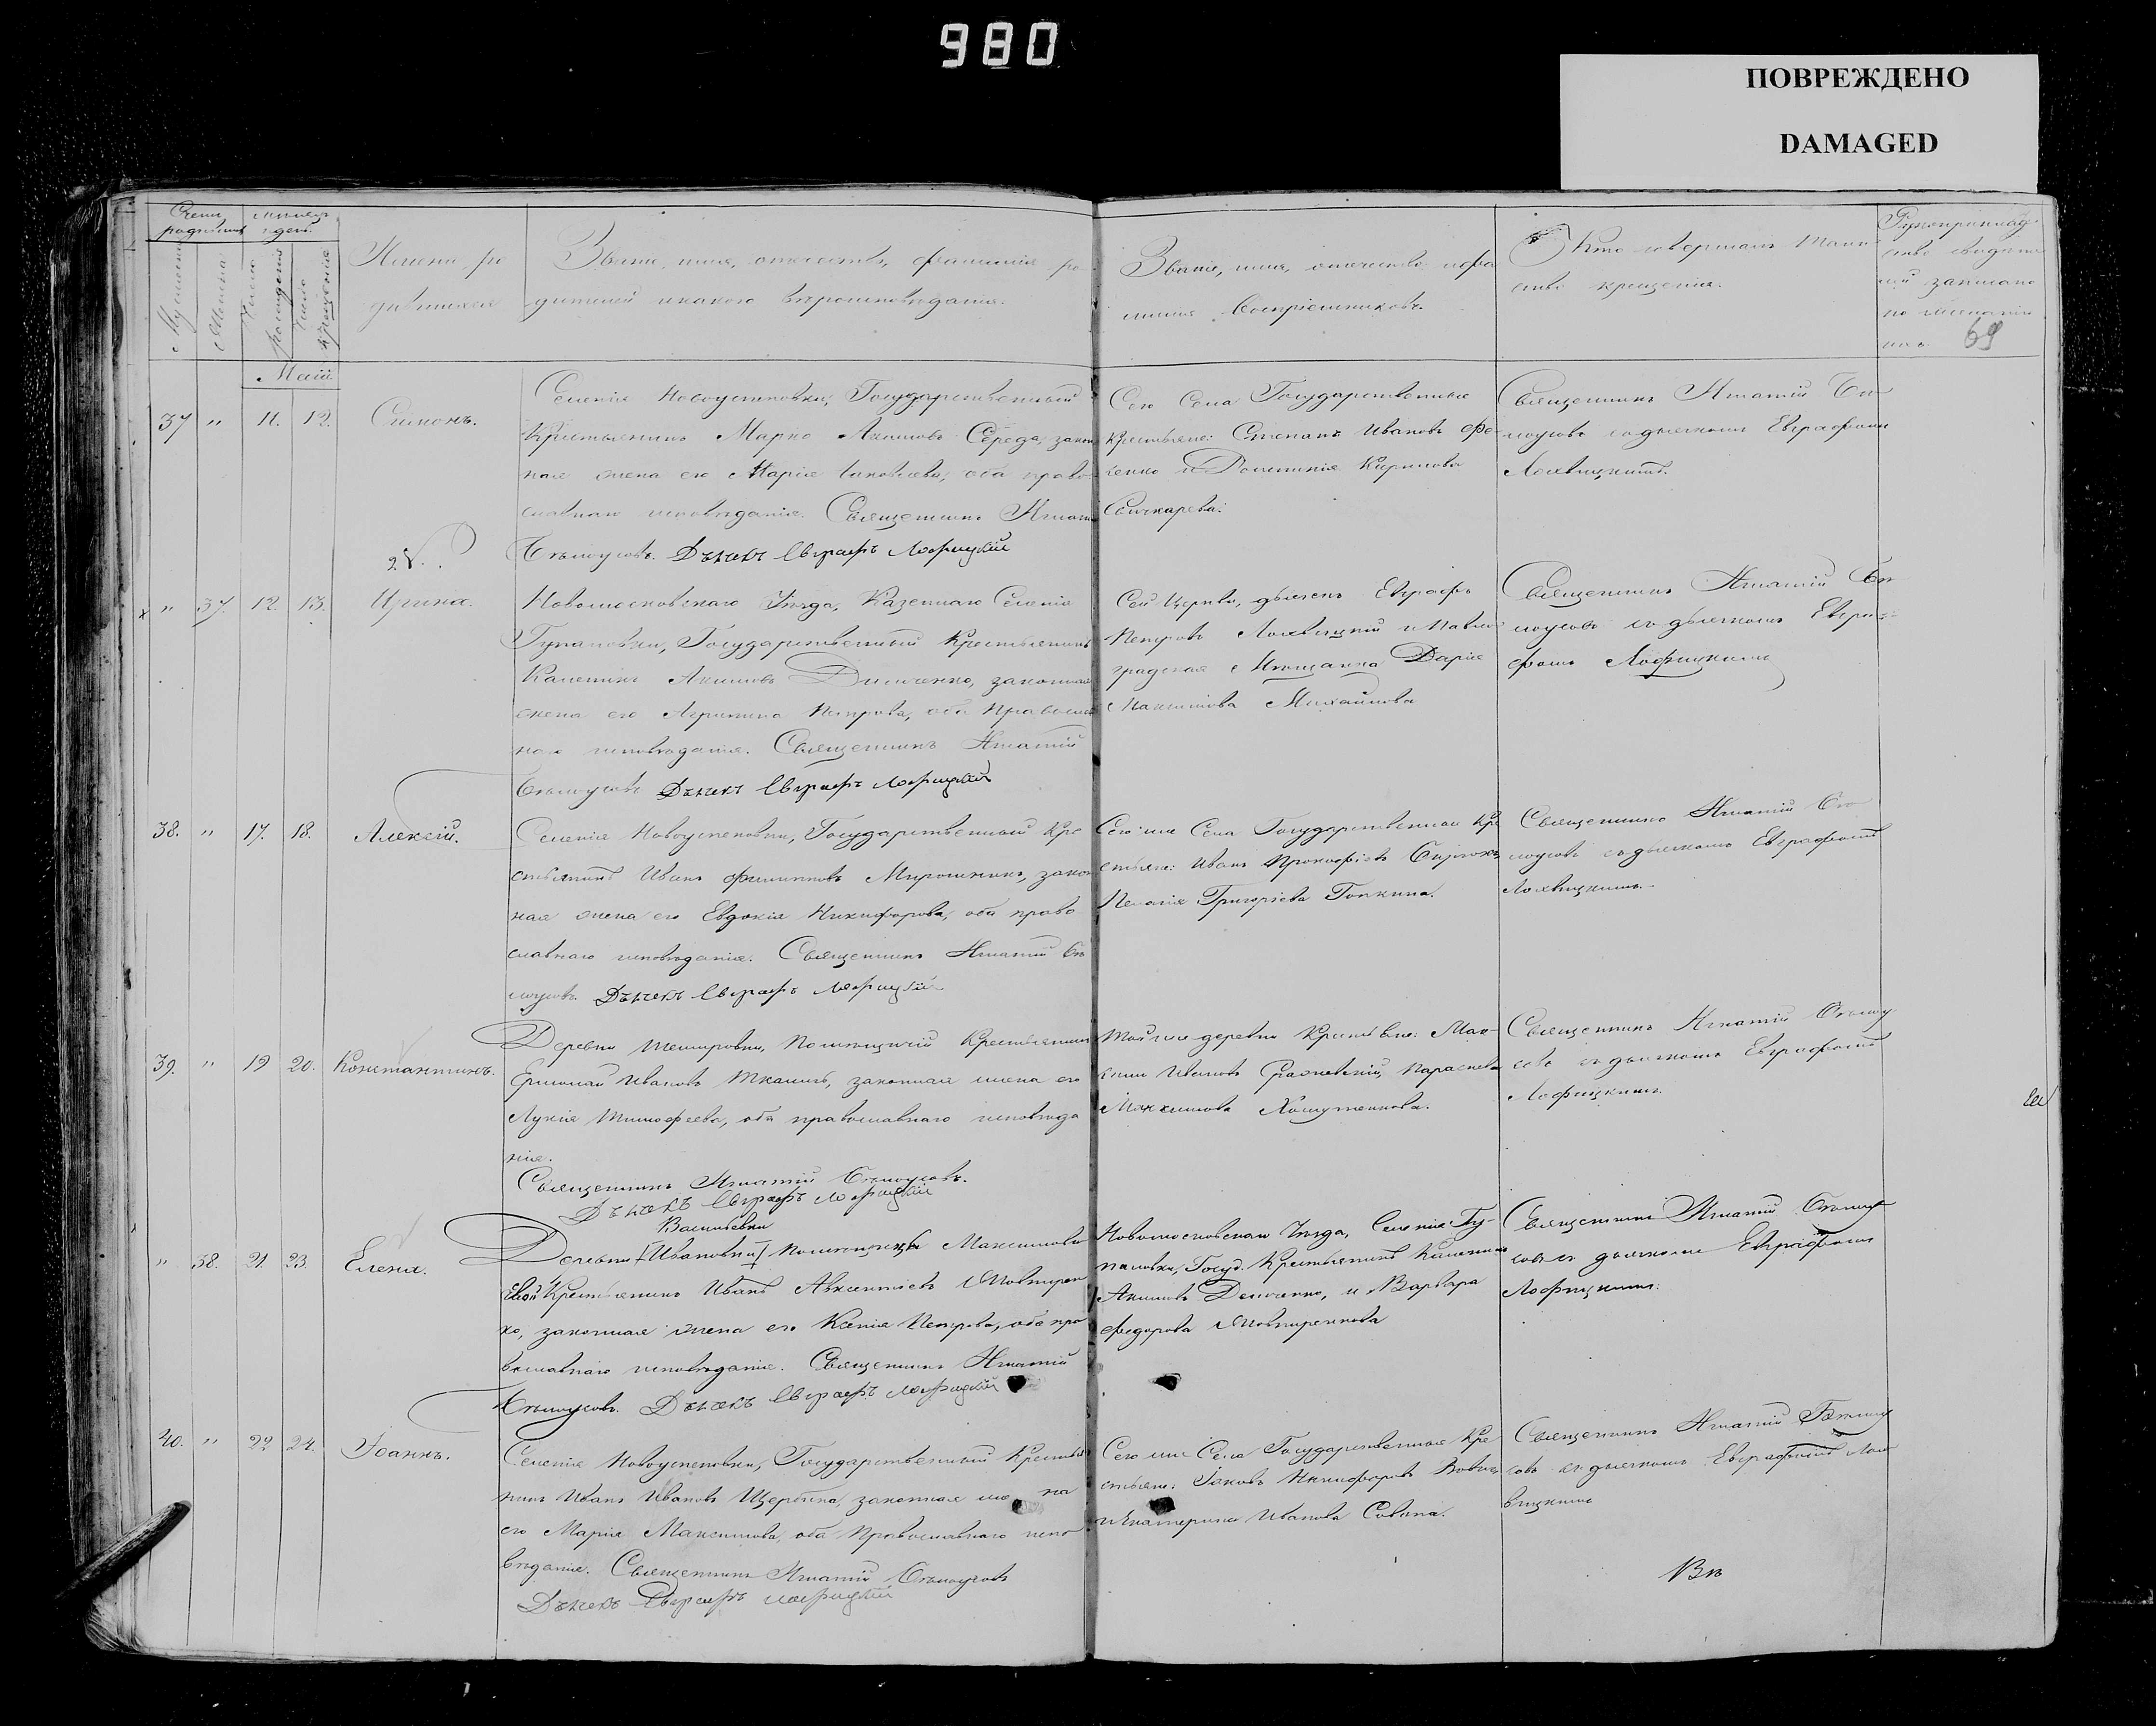 980
ПОВРЕЖДЕНО
DAMAGED
Счетъ родившихся
Мѣсяцъ и день
Мужеска
Женска
Число рожденія
Число крещенія
Имена родившихся
Званіе, имя, отчество, фамилія родителей и какого вѣроисповѣданія.
Званіе, имя, отчество и фамилія Воспріемниковъ.
Кто совершалъ таинство крещенія.
69
Маій
37 " 11. 12. Симонъ.
Селенія Новоуспеновки, Государственный
Крестьянинъ Марко Акимовъ Середа, закон
ная жена его Марія Іаковлева, оба право
славнаго исповѣданія. Священникъ Игнатій
Бѣлоусовъ. Дьячекъ Евграфъ Лофицкій
Сего Села Государственные
Крестьяне: Степанъ Ивановъ
и Домникія Кирилова
Священникъ Игнатій Бѣ
лоусовъ съ дьячкомъ Евграфомъ
Лохвицкимъ.
" 37. 12. 13. Ирина.
Новомосковскаго Уѣзда, Казеннаго Селенія
Гупаловки, Государственный Крестьянинъ
Калетикъ Акимовъ Дьяченко, законная
жена его Агрипина Петрова, оба Правосла
наго исповѣданія. Священникъ Игнатій
Бѣлоусовъ Дьячекъ Евграфъ Лофицкій
Сей Церкви, дьячекъ Евграфъ
Петровъ Лохвицкій и Павло
градская Мѣщанка Дарія
Максимова Михайлова
Священникъ Игнатій Бѣ
лоусовъ съ дьячкомъ Евгра
фомъ Лофицкимъ
38. " 17. 18. Алексій.
Селенія Новоуспеновки, Государственный Кре
стьянинъ Иванъ Филиповъ Мирошникъ, закон
ная жена его Евдокія Никифорова, оба право
славнаго исповѣданія. Священникъ Игнатій Бѣ
лоусовъ. Дьячекъ Евграфъ Лофицкій
Сего же Села Государственные Кре
стьяне: Иванъ Прокофіевъ
Пелагія Григоріева
Священникъ Игнатій Бѣ
лоусовъ съ дьячкомъ Евграфомъ
Лохвицкимъ.
39. " 19 20. Константинъ.
Деревни Шемировки, Помѣщичій Крестьянинъ
Ермолай Ивановъ Ткаличъ, законная жена его
Лукія Тимофеева, оба православнаго исповѣда
нія.
Священникъ Игнатій Бѣлоусовъ.
Дьячекъ Евграфъ Лофицкій
Той же деревни Крестьяне: Мак-
симъ Ивановъ Параскева
Максимова
Священникъ Игнатій Бѣлоу
совъ съ дьячкомъ Евграфомъ
Лофицкимъ.
Васильевки
" 38. 21. 23. Елена.
Деревни [Ивановки] помѣщицы Максимови
евой Крестьянинъ Иванъ Авксентіевъ
ко, законная жена его Ксенія Петрова, оба пра
вославнаго исповѣданія. Священникъ Игнатій
Бѣлоусовъ. Дьячекъ Евграфъ Лофицкій
Новомосковскаго Уѣзда, Селенія Гу-
паловки, Госуд. Крестьянинъ Калетикъ
Акимовъ Дьяченко, и Варвара
Федорова
Священникъ Игнатій Бѣлоу
совъ съ дьячкомъ Евграфомъ
Лофицкимъ.
40. " 22. 24. Іоаннъ.
Селенія Новоуспеновки, Государственный Крестья
нинъ Иванъ Ивановъ Щербина, законная жена
его Марія Максимова, оба Православнаго испо
вѣданія. Священникъ Игнатій Бѣлоусовъ
Дьячекъ Евграфъ Лофицкій
Сего же Села Государственные Кре
стьяне: Іаковъ Никифоровъ
и Екатерина Иванова
Священникъ Игнатій Бѣлоу
совъ съ дьячкомъ Евграфомъ Лох
вицкимъ